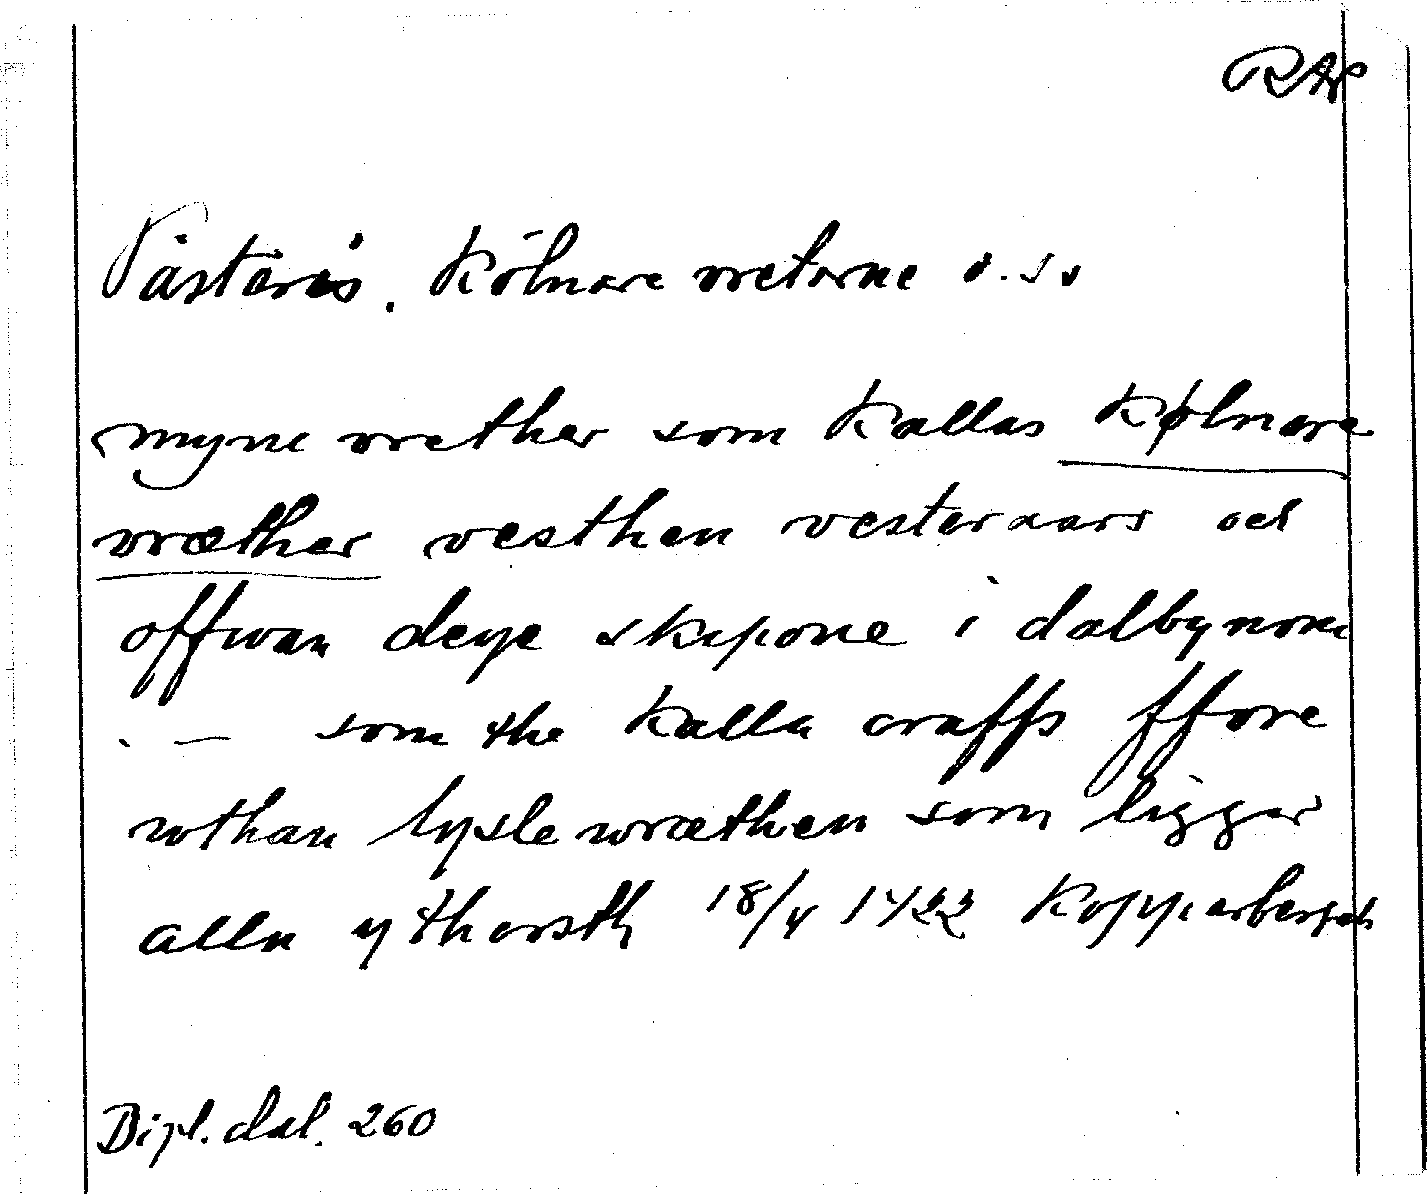 RAP
Västerås. Kölnare vretarne o. s. v
myne vrether som kallas Kølnare
vræther vesthen vesteraars och
offwan deye skipone i dalbynom
. — som the kalla oraffs ffore
wthan lysle wræthen som ligger
alla y thorsth 18/4 1422 Kopparberget
Dipl. dal. 260